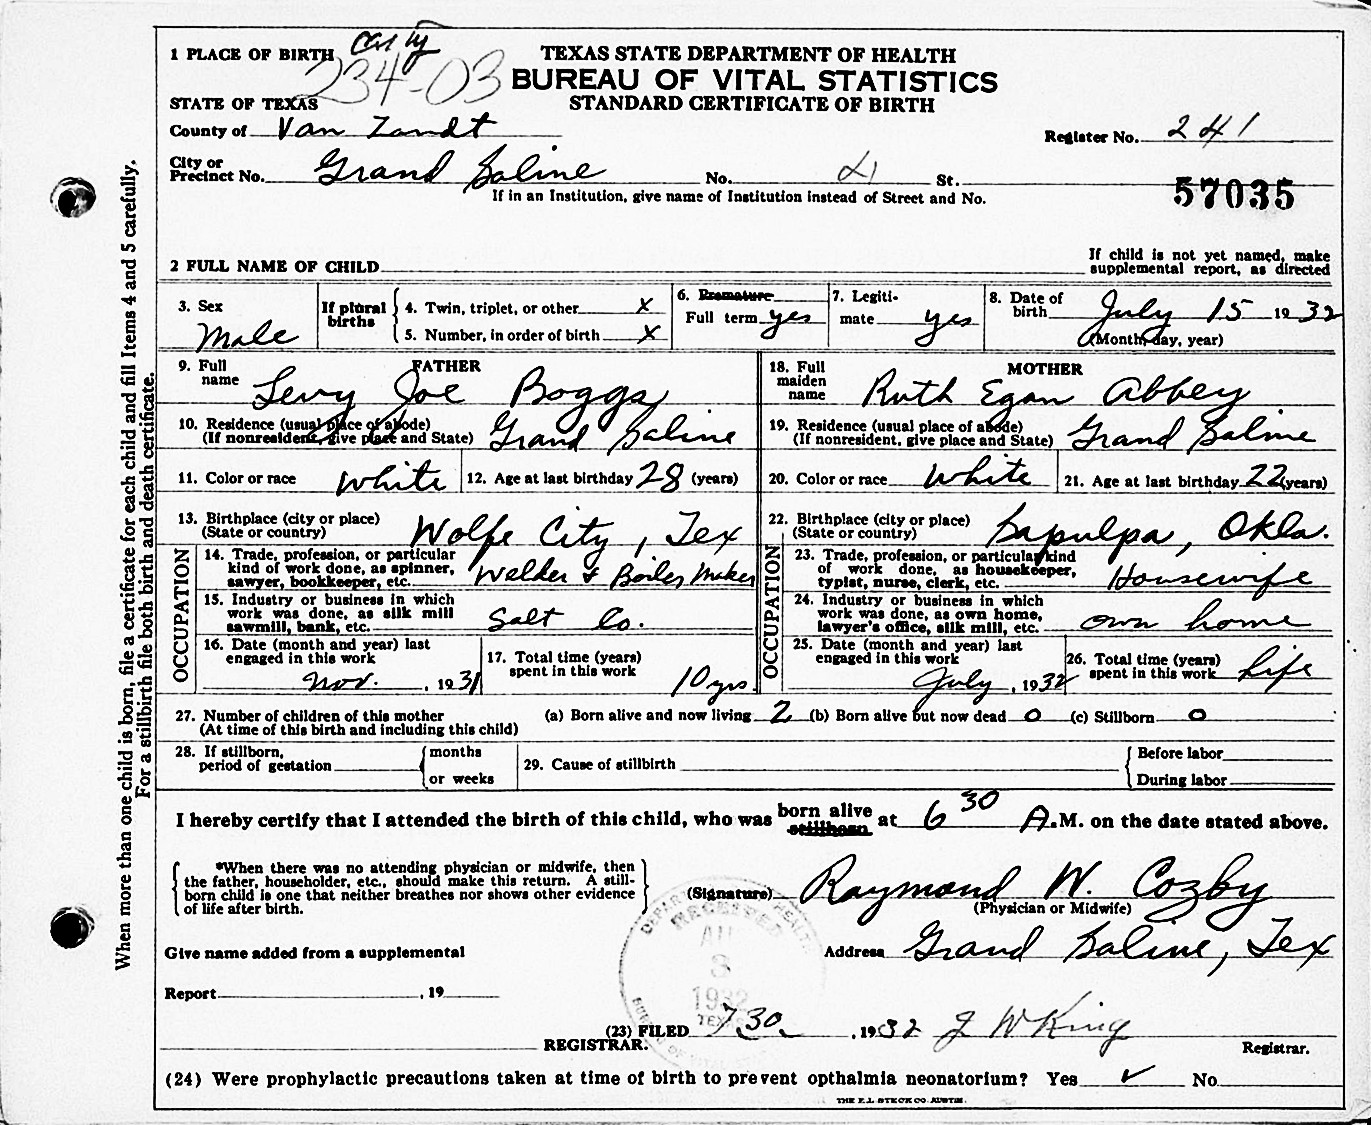 1 PLACE OF BIRTH
234-03
STATE OF TEXAS
TEXAS STATE DEPARTMENT OF HEALTH
BUREAU OF VITAL STATISTICS
STANDARD CERTIFICATE OF BIRTH
County of Van Zandt
Register No. 241
City or Precinct No. Grand Saline No. St.
If in an Institution, give name of Institution instead of Street and No.
57035
2 FULL NAME OF CHILD
If child is not yet named, make supplemental report, as directed
3. Sex Male
If plural births
4. Twin, triplet, or other x
5. Number, in order of birth x
6. Premature
Full term yes
7. Legitimate yes
8. Date of birth July 15 1932
(Month, day, year)
FATHER
9. Full name Levy Joe Boggs
10. Residence (usual place of abode)
(If nonresident, give place and State) Grand Saline
11. Color or race White
12. Age at last birthday 28 (years)
13. Birthplace (city or place)
(State or country) Wolfe City, Tex
OCCUPATION
14. Trade, profession, or particular
kind of work done, as spinner,
sawyer, bookkeeper, etc. Welder & Boiler Maker
15. Industry or business in which
work was done, as silk mill
sawmill, bank, etc. Salt Co.
16. Date (month and year) last
engaged in this work
Nov. , 1931
17. Total time (years)
spent in this work 10 yrs.
MOTHER
18. Full maiden name Ruth Egan Abbey
19. Residence (usual place of abode)
(If nonresident, give place and State) Grand Saline
20. Color or race White
21. Age at last birthday 22 (years)
22. Birthplace (city or place)
(State or country) Sapulpa, Okla.
OCCUPATION
23. Trade, profession, or particular kind
of work done, as housekeeper,
typist, nurse, clerk, etc. Housewife
24. Industry or business in which
work was done, as own home,
lawyer's office, silk mill, etc. own home
25. Date (month and year) last
engaged in this work
July , 1932
26. Total time (years)
spent in this work Life
27. Number of children of this mother
(At time of this birth and including this child)
(a) Born alive and now living 2 (b) Born alive but now dead 0 (c) Stillborn 0
28. If stillborn,
period of gestation
months
or weeks
29. Cause of stillbirth
Before labor
During labor
I hereby certify that I attended the birth of this child, who was born alive stillborn at 6 30 A.M. on the date stated above.
*When there was no attending physician or midwife, then
the father, householder, etc., should make this return. A still-
born child is one that neither breathes nor shows other evidence
of life after birth.
(Signature) Raymond W. Cozby
(Physician or Midwife)
Give name added from a supplemental
Address Grand Saline, Tex
Report , 19
RECEIVED
AU
8
1932
TEXAS
(23) FILED 7 30 , 1932 J W King
REGISTRAR.
Registrar.
(24) Were prophylactic precautions taken at time of birth to prevent opthalmia neonatorium? Yes ✓ No
THE E.L. STECK CO. AUSTIN.
When more than one child is born, file a certificate for each child and fill Items 4 and 5 carefully.
For a stillbirth file both birth and death certificate.